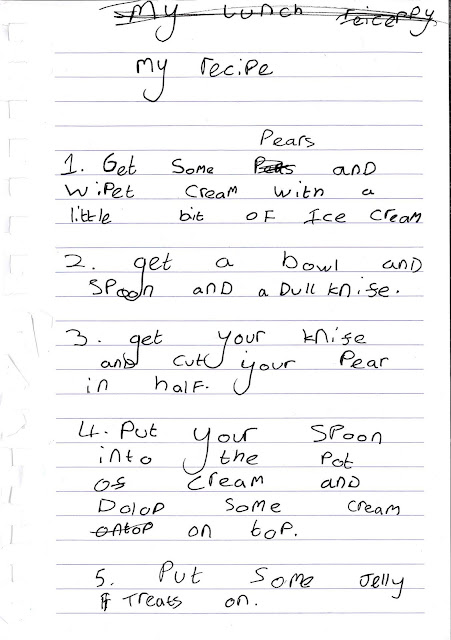 My Lunch
My recipe
Pears
1. Get some Pears and
wipet cream with a
little bit of Ice cream
2. get a bowl and
spoon and a Dull knife.
3. get your knife
and cut your Pear
in half.
4. Put your spoon
into the Pot
of cream and
Dolop some cream
ontop on top.
5. Put some Jelly
Treats on.